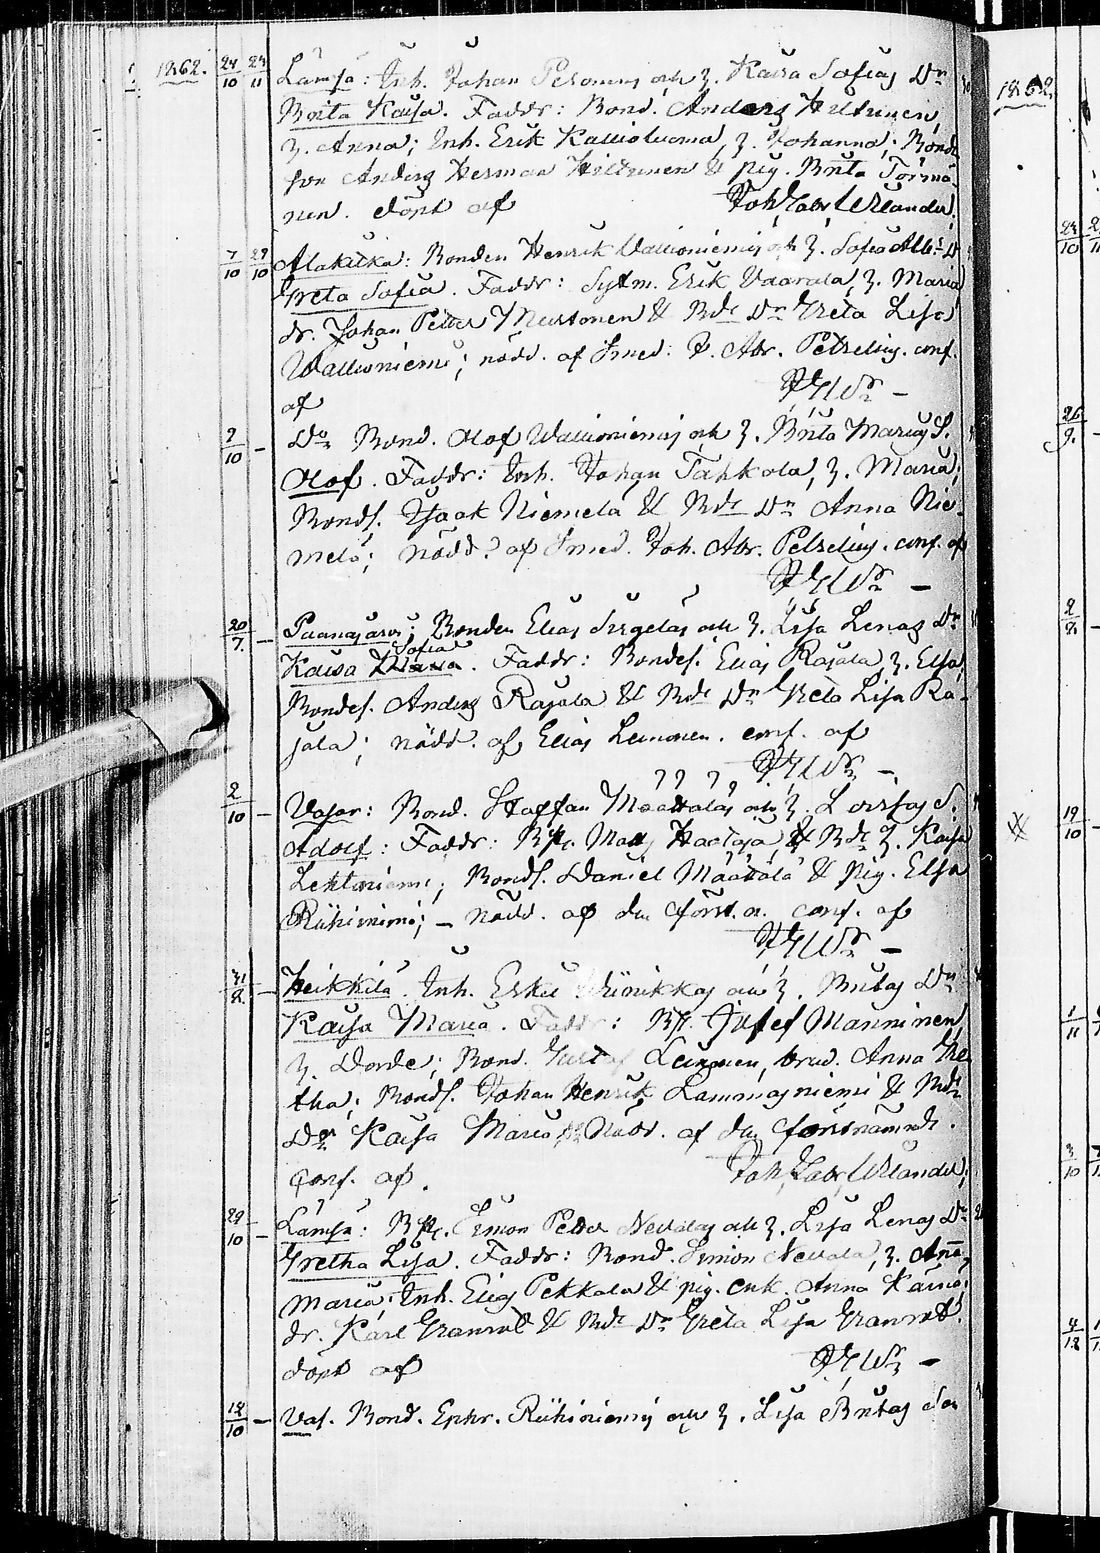 1862. 24/10 23/11 Lämsä: Inh. Johan Pesonens och h. Kaisa Sofias Dr
Brita Kaisa. Faddr: Bond. Anders Hiltunen,
h. Anna; Inh. Erik Kallioluoma, h. Johanna; Bonde
son Anders Herman Hiltunen & pig. Brita Törmä-
nen. döpt af Joh. Gabr. Wilander.
7/10 29/10 Alakitka: Bonden Henrik Wallioniemis och h. Sofia Albr: D
Greta Sofia. Faddr: Sytm. Erik Vaarala, h. Maria
dr. Johan Petter Mursonen & Bde Dr Greta Lisa
Wallioniemi; nödd. af Smed: P. Abr. Petrelius. conf.
af JGWr –
9/10 – Do Bond. Olof Wallioniemis och h. Brita Marias S.
Olof. Faddr: Inh. Johan Tahkola, h. Maria;
Bonds. Isaak Niemelä & Bde Dr Anna Nie-
melä; nödd. af Smed. Joh. Abr. Petrelius. conf. af
JGWr –
20/7 – Paanajärvi; Bonden Elias Sirgeläs och h. Lisa Lenas Dr
Kaisa Sofia. Faddr: Bondes. Elias Rajala, h. Elsa,
Bondes. Anders Rajala & Bde Dr Greta Lisa Ra-
jala; nödd. af Elias Leinonen. conf. af
JGWr –
2/10 – Vasar: Bond. Staffan Määttäläs och h. Lovisas S.
Adolf: Faddr: Matts Haataja, & Bde h. Kaisa
Lehtiniemi; Bonds. Daniel Määttälä & pig. Elsa
Riihiniemi; – nödd. af den först.n. conf. af
JGWr –
31/8 – Heikkilä. Inh. Erkki och h. Britas Dr
Kaisa Maria. Faddr: Josef Manninen
h. Dorde; Bond. Gustaf Leinonen, brud. Anna Gre
tha; Bonds. Johan Henrik Lammasniemi & Bde
Dr Kaisa Maria Nödd. af den förstnämnde.
Conf. af Joh. Gabr. Wilander;
29/10 – Lämsä: Simon Petter Nevalas och h. Lisa Lenas Dr
Gretha Lisa. Faddr: Bond. Simon Nevala, h. Anna
Maria; Inh. Elias Pekkala & pig. enk. Anna Kärnä;
dr. Karl Granrot & Bde Dr Greta Lisa Granrot.
döpt af JGWr –
18/10 – Vas. Bond. Ephr. Riihiniemis och h. Lisa Britas Son
1862